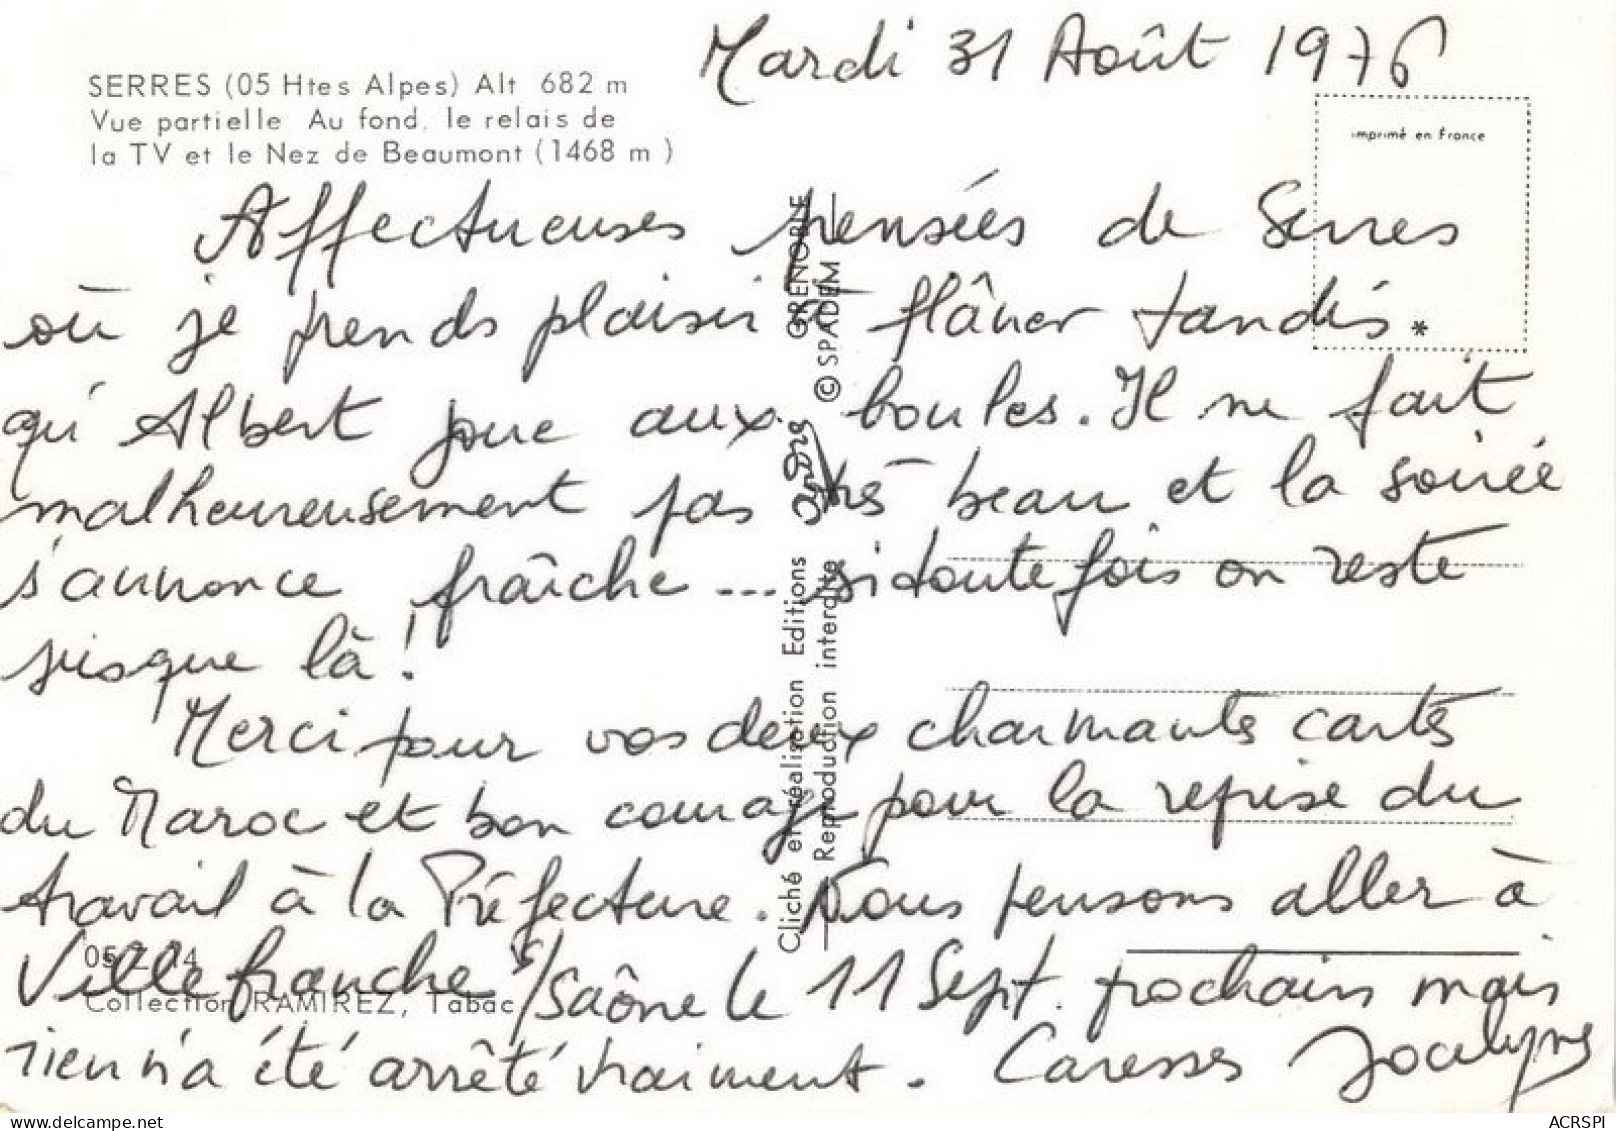 Mardi 31 Août 1976
SERRES (05 Htes Alpes) Alt 682 m
Vue partielle Au fond, le relais de
la TV et le Nez de Beaumont (1468 m )
imprimé en France
Affectueuses pensées de Serres
où je prends plaisir à flâner tandis
qu'Albert joue aux boules. Il ne fait
malheureusement pas très beau et la soirée
s'annonce fraîche ... si toutefois on reste
jusque là !
Merci pour vos deux charmantes cartes
du Maroc et bon courage pour la reprise du
travail à la Préfecture. Nous pensons aller à
Villefranche s/Saône le 11 Sept. prochain mais
rien n'a été arrêté vraiment. Caresses Jocelyne
Cliché et réalisation Editions André GRENOBLE
Reproduction interdite © SPADEM
*
Collection RAMIREZ, Tabac
delcampe.net
ACRSPI